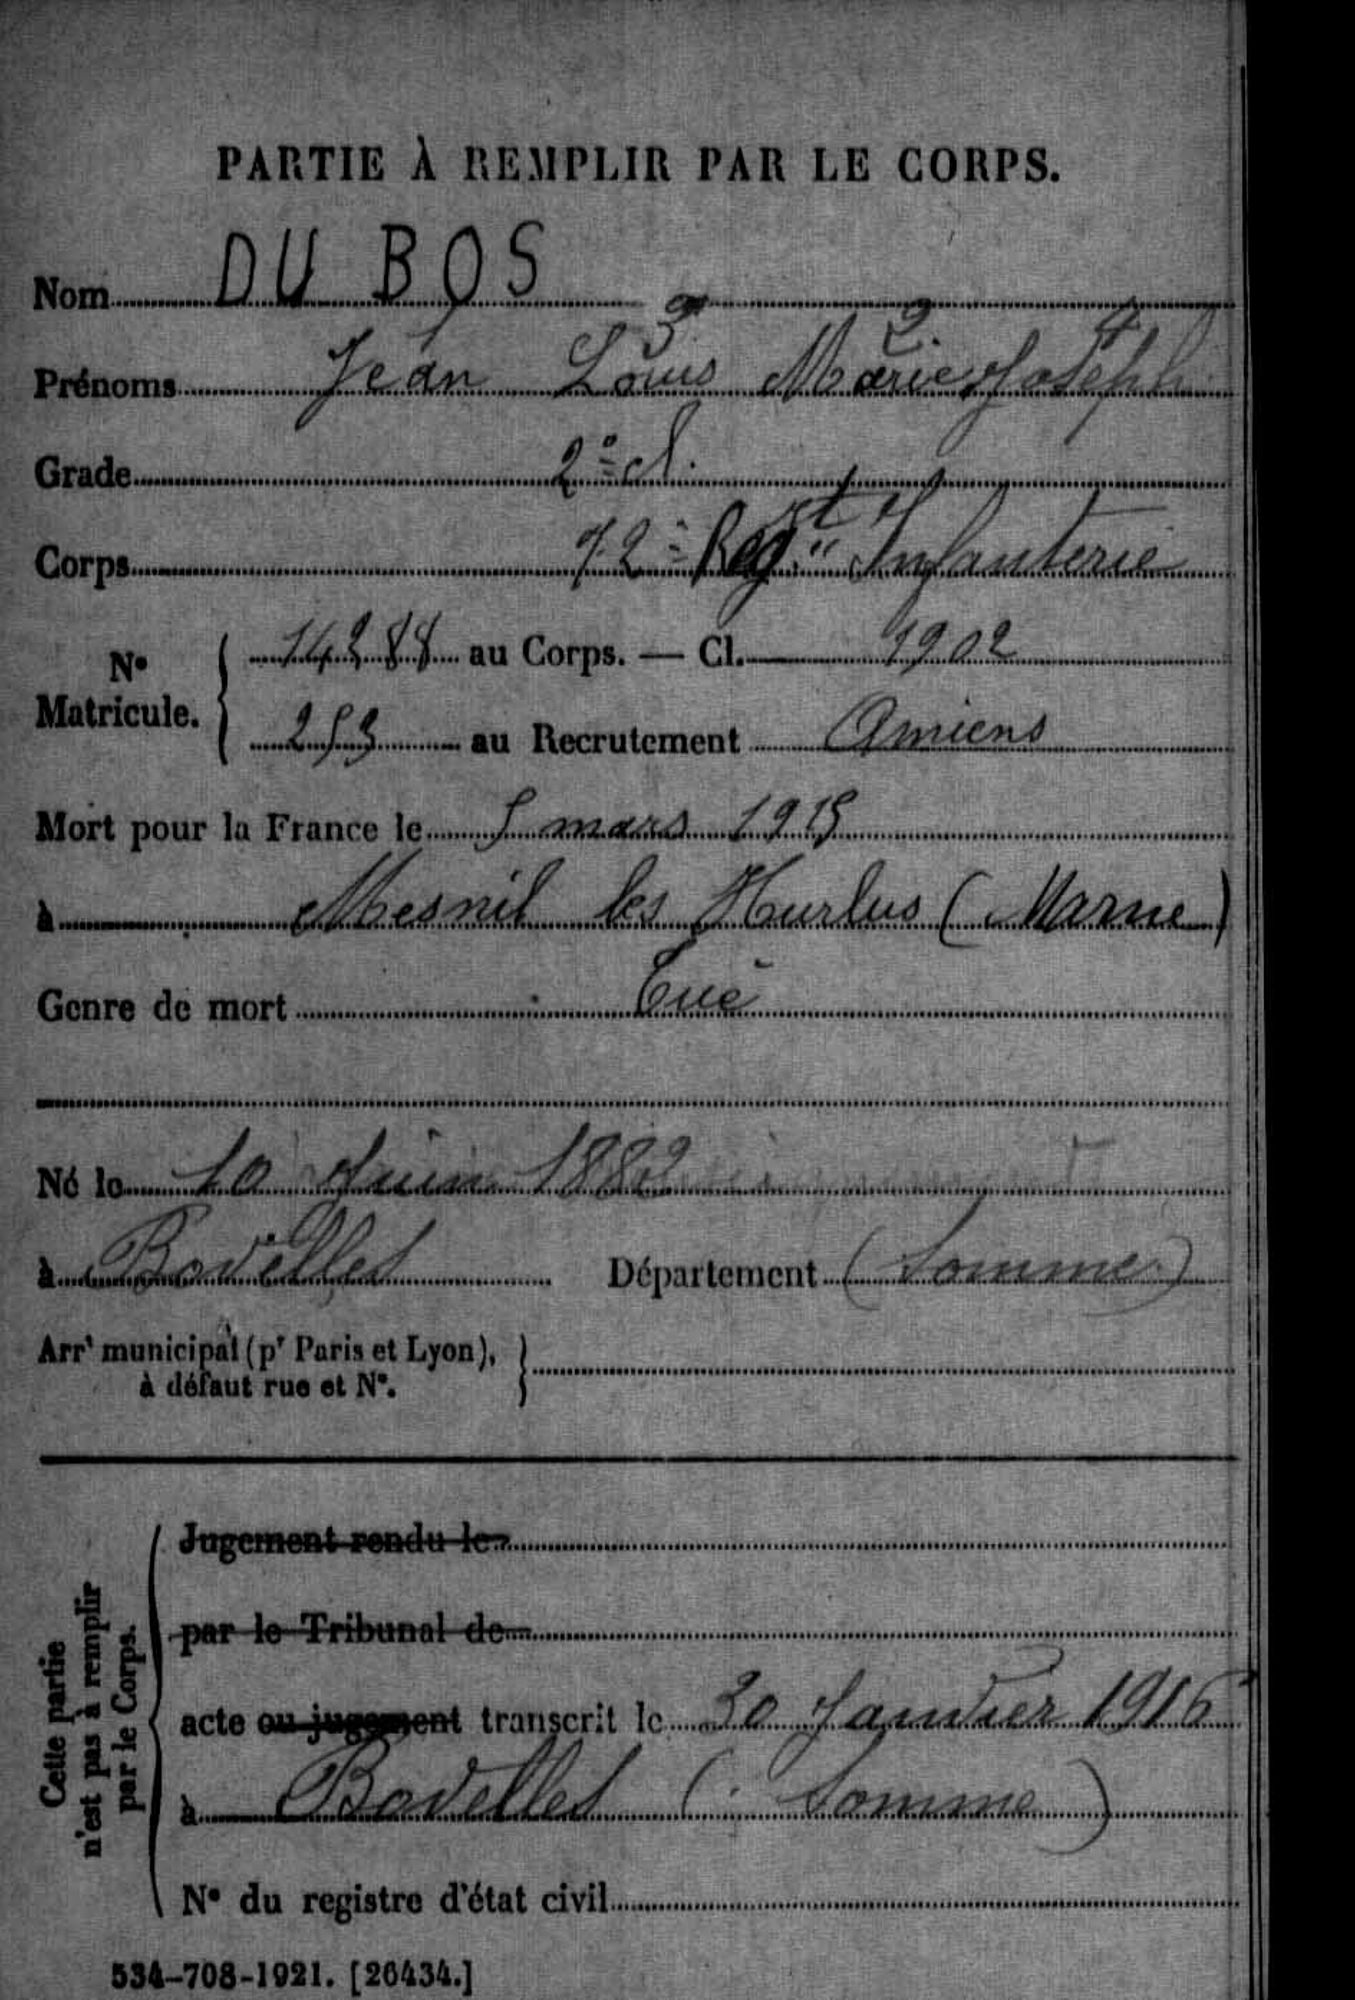 PARTIE À REMPLIR PAR LE CORPS.
Nom DU BOS
3 2 4
Prénoms Jean Louis Marie Joseph
Grade 2e cl.
Corps 72e Regt Infanterie
N° Matricule. 14288 au Corps. — Cl. 1902
253 au Recrutement Amiens
Mort pour la France le 5 mars 1915
à Mesnil les Hurlus (Marne)
Genre de mort Tué
Né le 10 Juin 1882
à Bovelles Département (Somme)
Arrt municipal (pr Paris et Lyon),
à défaut rue et N°.
Cette partie
n'est pas à remplir
par le Corps.
Jugement rendu le
par le Tribunal de
acte ou jugement transcrit le 30 Janvier 1916
à Bovelles (Somme)
N° du registre d'état civil
534-708-1921. [26434.]